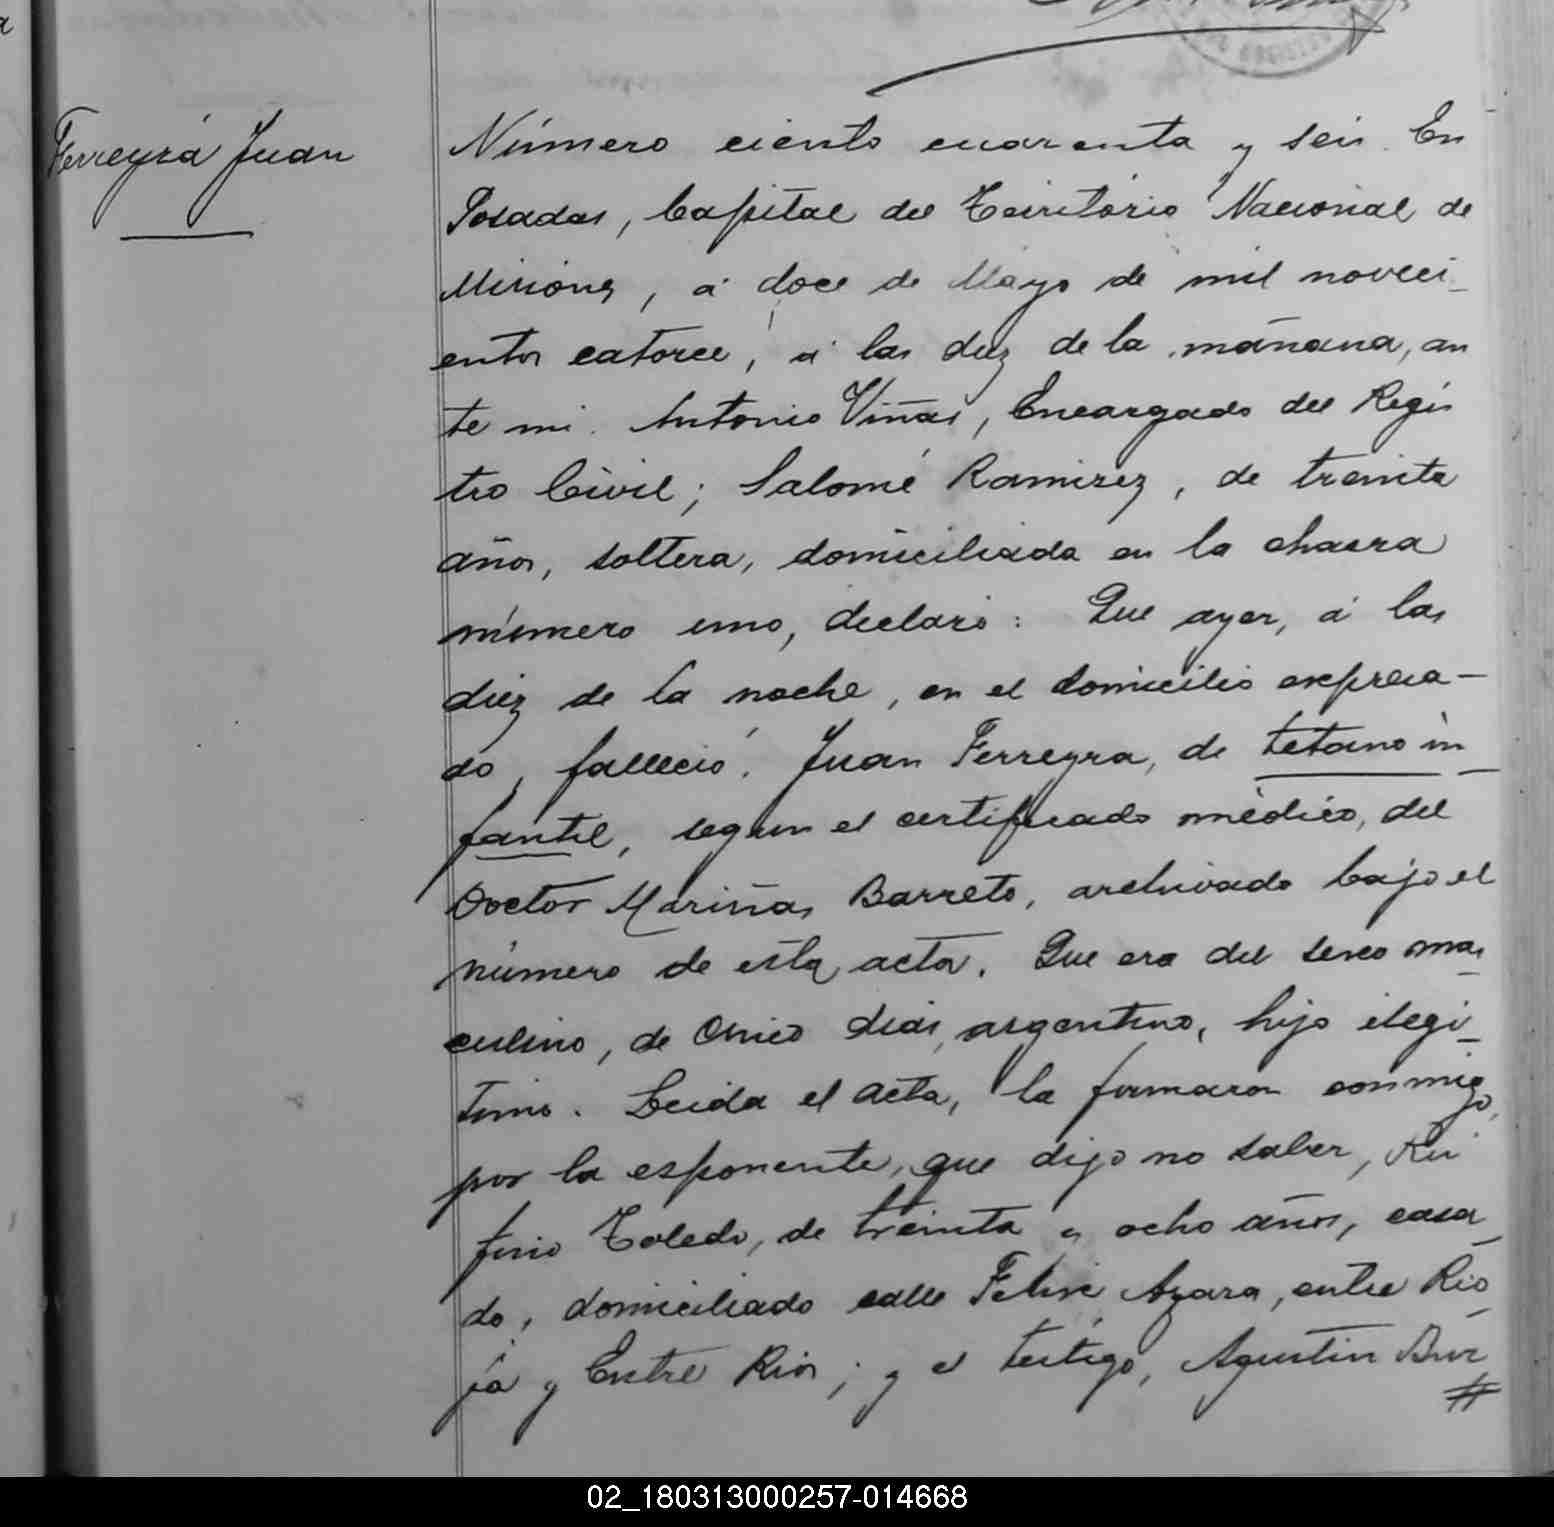 Ferreyra Juan
Número ciento cuarenta y seis. En
Posadas, Capital del Territorio Nacional de
Misiones, á doce de Mayo de mil noveci_
entos catorce, á las diez de la mañana, an
te mi. Antonio Viñas, Encargado del Regis
tro Civil; Salomé Ramirez, de treinta
años, soltera, domiciliada en la chacra
número uno, declaró: Que ayer, á las
diez de la noche, en el domicilio expresa-
do, falleció, Juan Ferreyra, de tétano in_
fantil, segun el certificado médico, del
Doctor Mariñas Barreto, archivado bajo el
número de esta acta. Que era del sexo mas_
culino, de cinco dias, argentino, hijo ilegi_
timo. Leida el acta, la firmaron conmigo,
por la esponente, que dijo no saber, Ru
fino Toledo, de treinta y ocho años, casa_
do, domiciliado calle Felix Azara, entre Rio_
ja y Entre Rios; y el testigo, Agustin
02_180313000257-014668